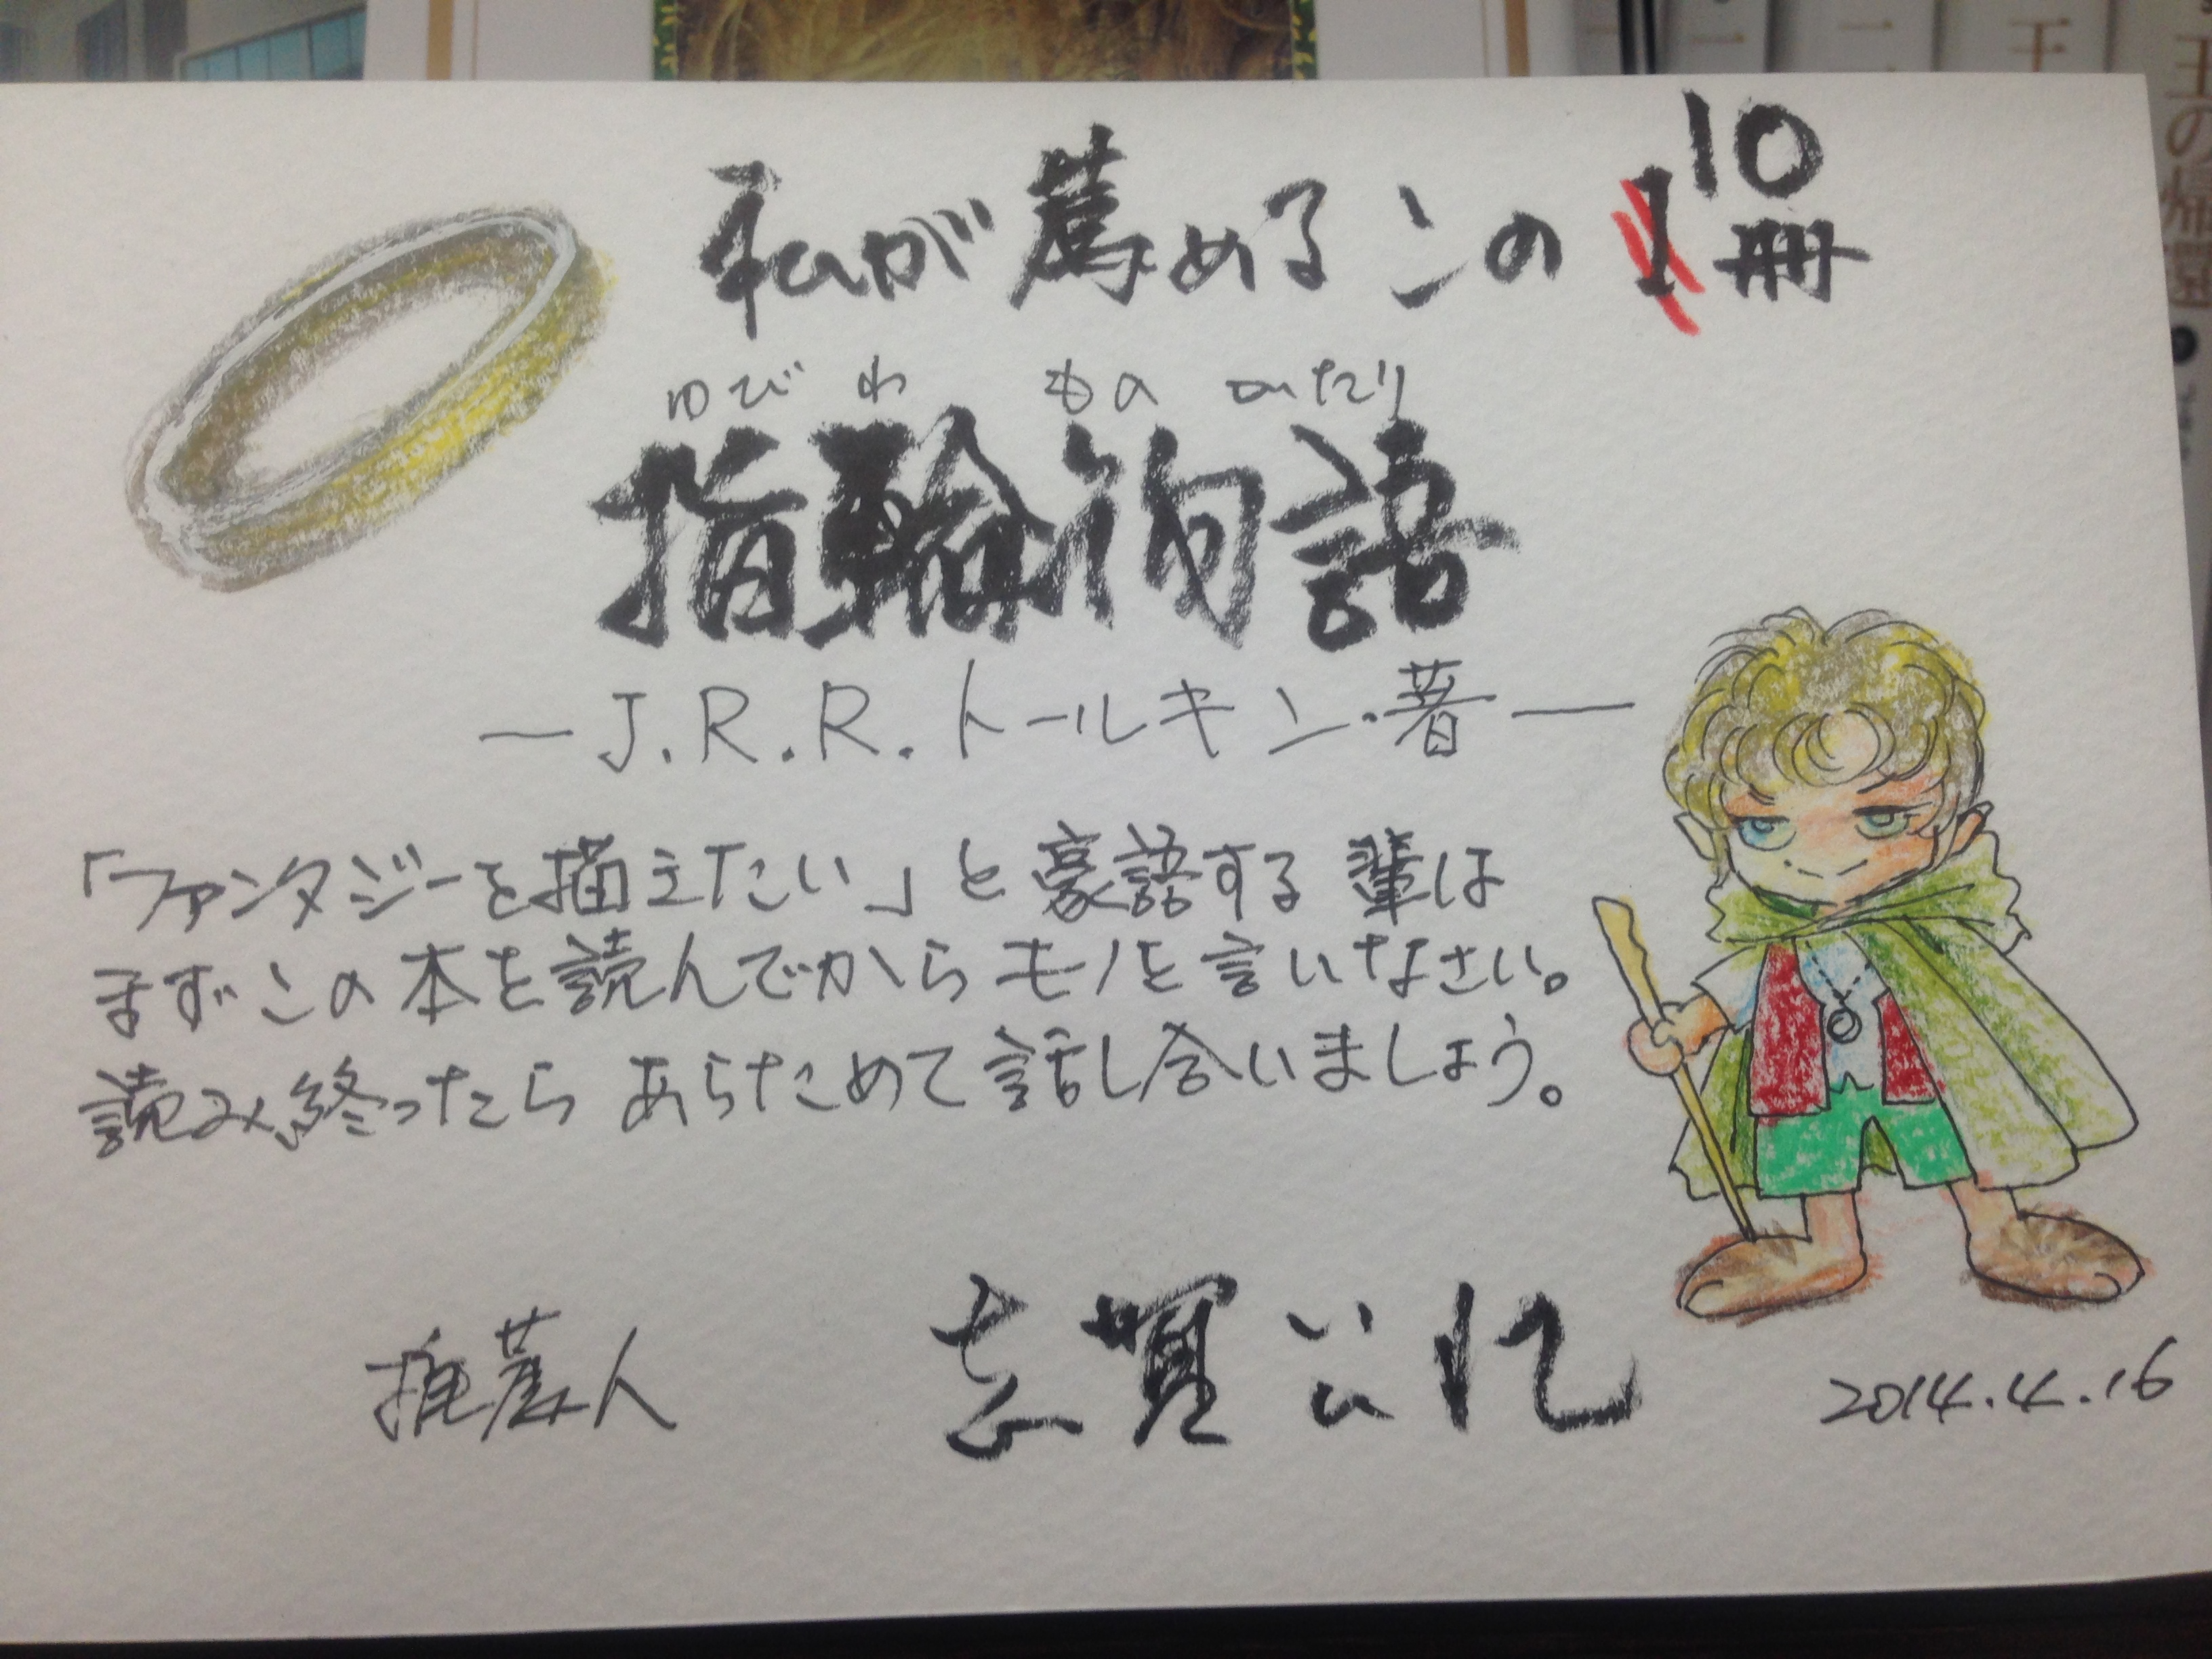 私が薦めるこの10冊
ゆびわものがたり
指輪物語
―J.R.R.トールキン・著―
「ファンタジーを描えたい」と豪語する輩は
まずこの本を読んでからモノを言いなさい。
読み終ったらあらためて話し合いましょう。
推薦人 志賀公江
2014.4.16
王の帰還